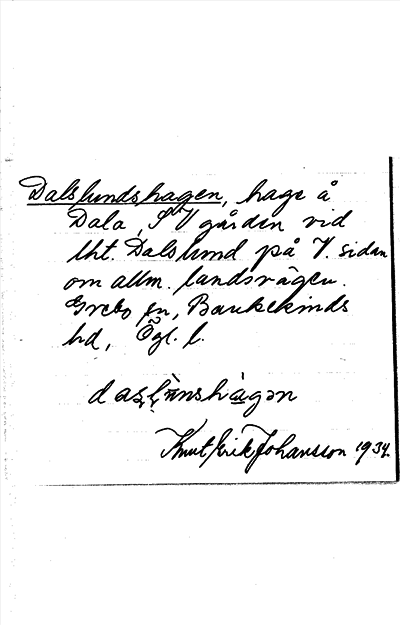 Dalslundshagen, hage å
Dala, S V gården vid
lht. Dalslund på V. sidan
om allm. landsvägen.
Grebo sn, Bankekinds
hd, Ögl. l.
Knut Erik Johansson 1934.